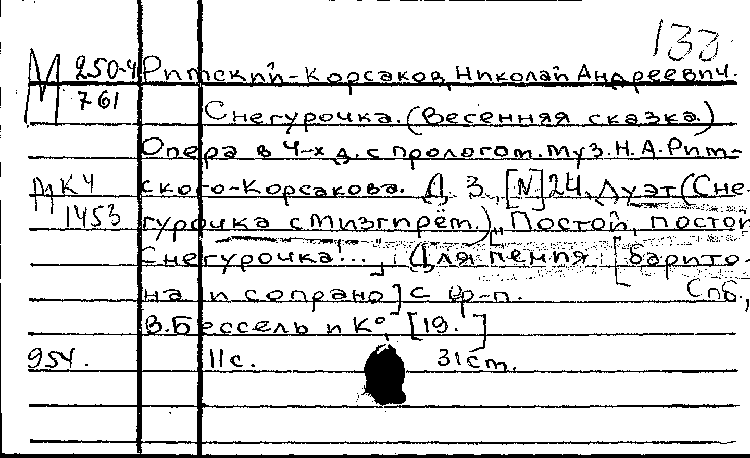 133
М 250-4 Римский-Корсаков, Николай Андреевич.
761 Снегурочка. (Весенняя сказка)
Опера в 4-х д. с прологом. Муз. Н. А. Рим-
М К 4 ского-Корсакова. Д. 3, [N] 24. Дуэт (Сне-
1453 гурочка с Мизгирем.) „Постой, постой
Снегурочка!..." Для пения [барито-
на и сопрано] с ф-п. Спб.,
В. Бессель и К°, [19. ]
954. 11 с. 31 см.